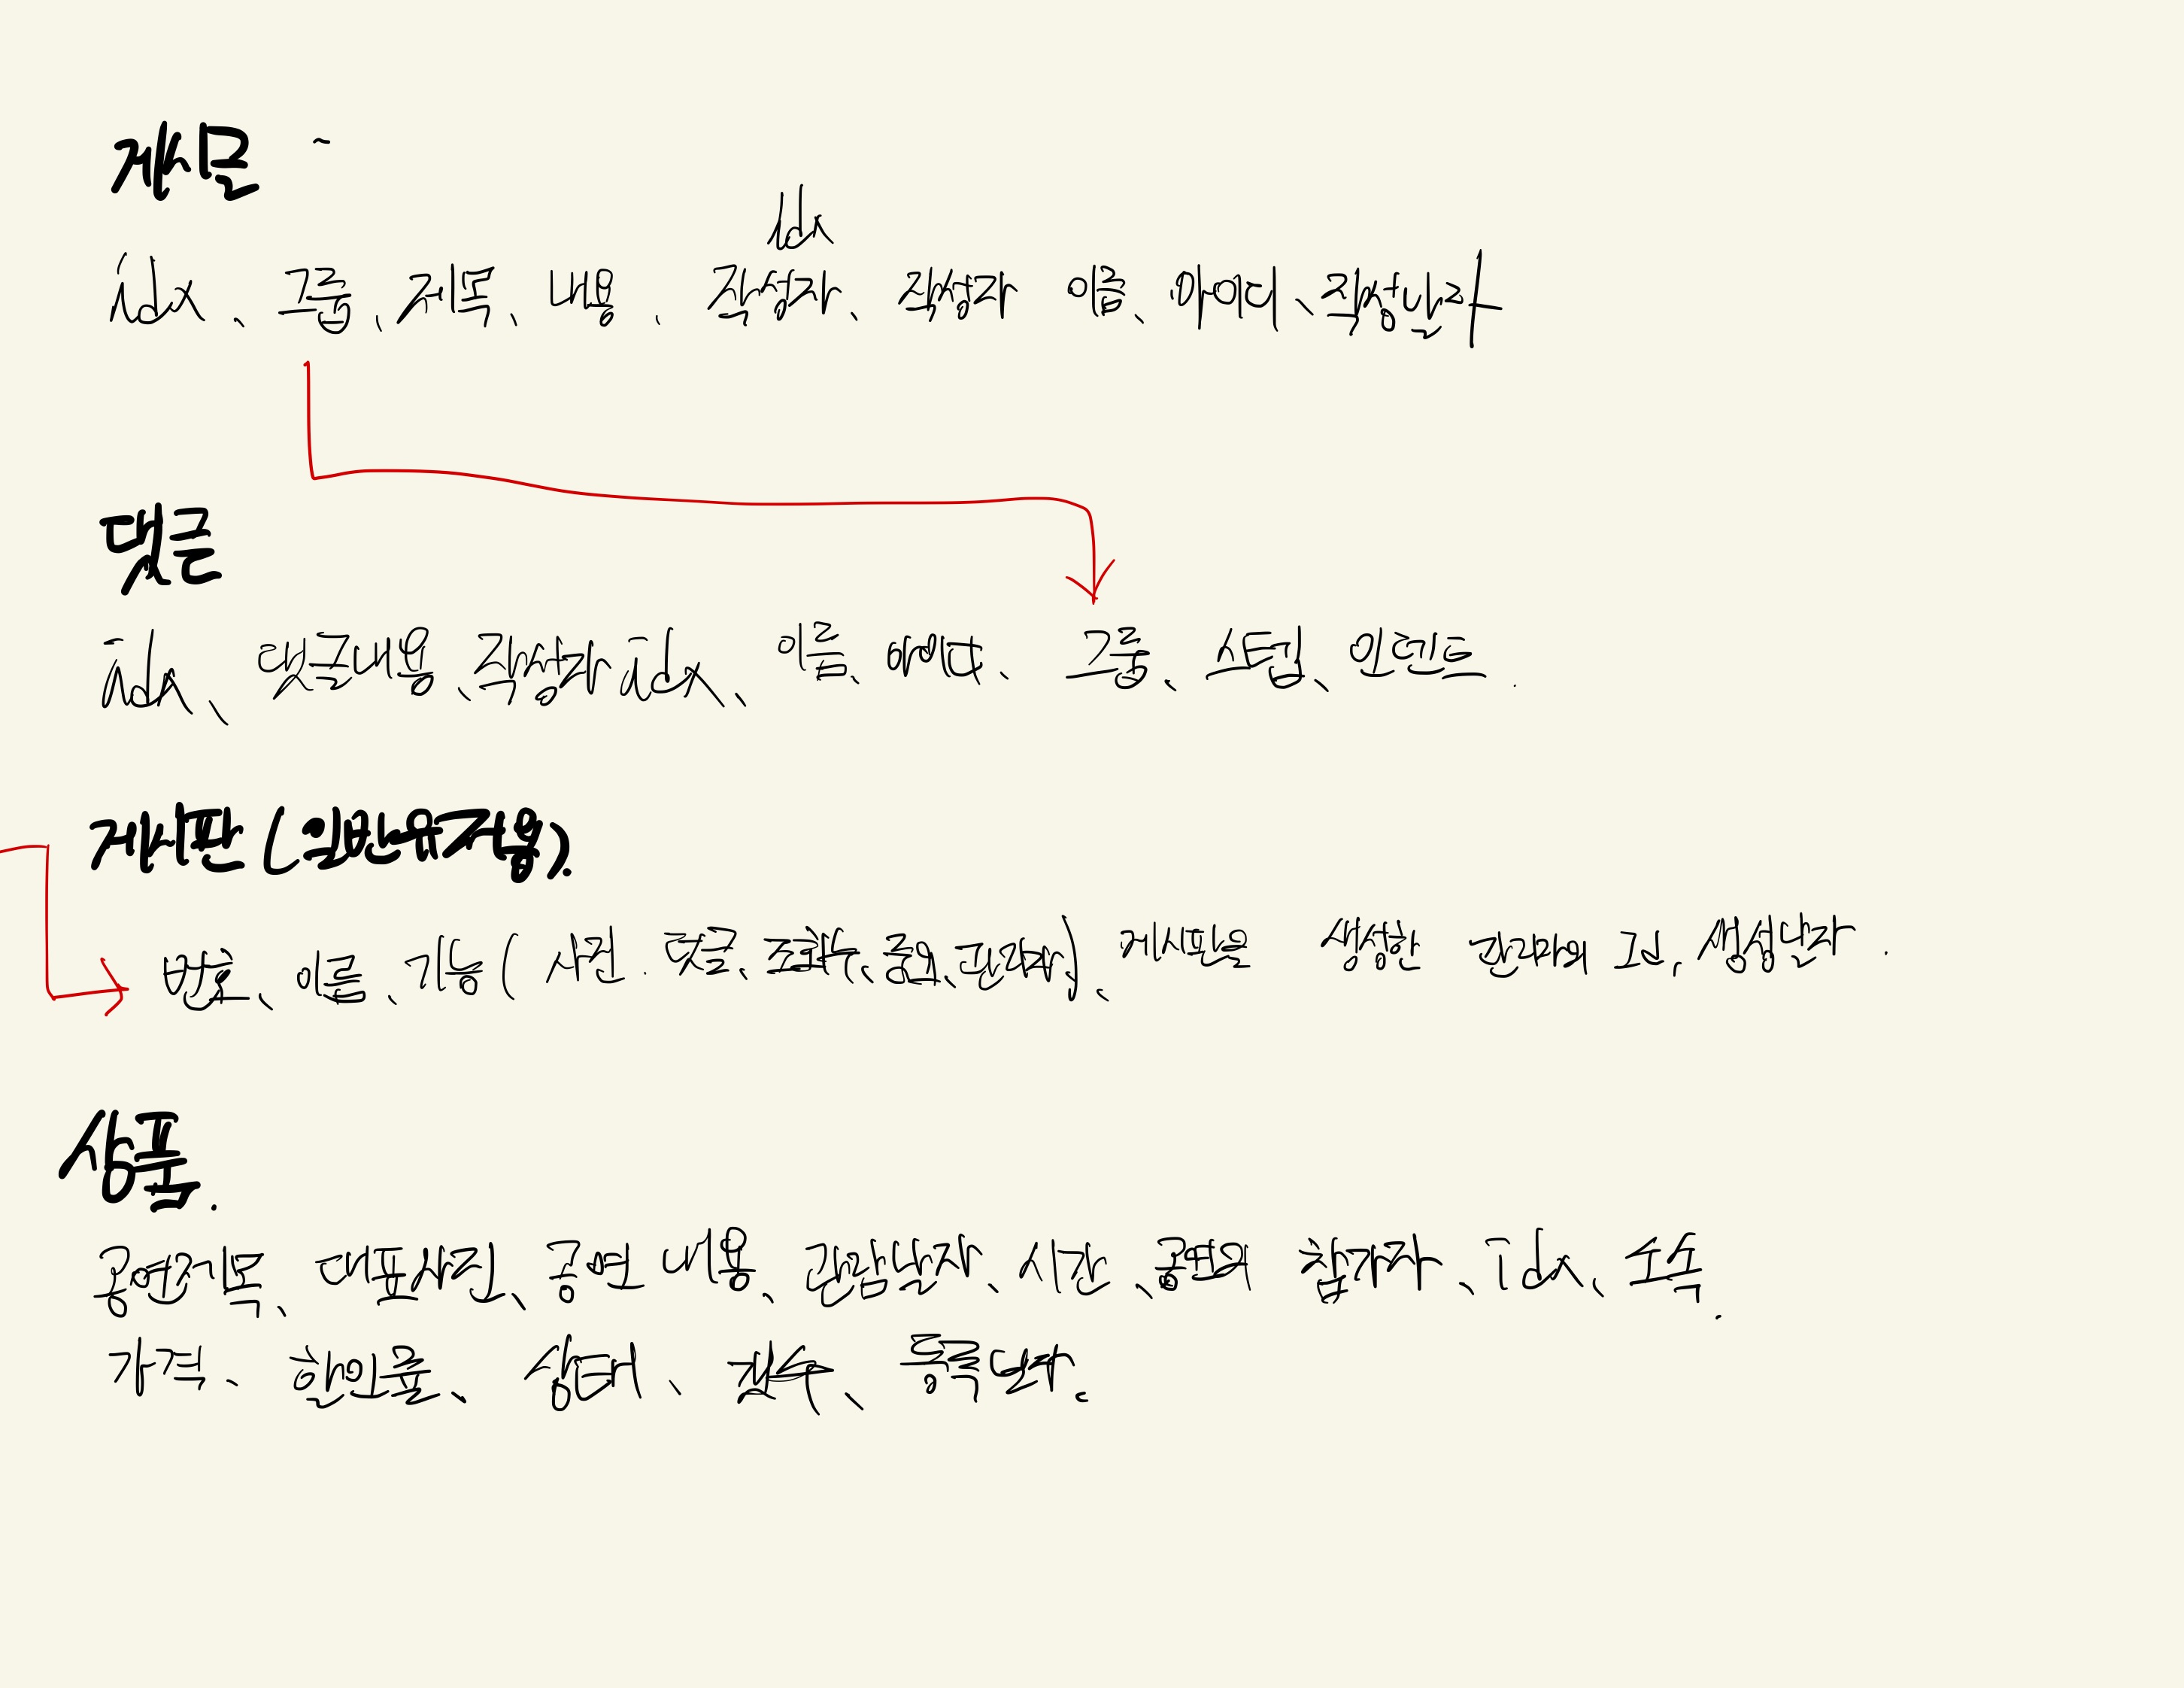 게시물
idx
idx, 그룹, 제목, 내용, 작성자, 작성자 이름, 아이디, 작성날자
댓글
idx, 댓글내용, 작성자 idx, 이름, 그룹, 스텝, 인덴트.
게시판 (일반유저용).
번호, 이름, 기능( 사진. 댓글, ), 게시판을 생성한 생성날자.
상품.
공연제목, 대표사진, 공연 내용, 관람날자, 시간, 공연의 참여자, idx, 주소.
가격, 할인율, 상태, 등록날자.